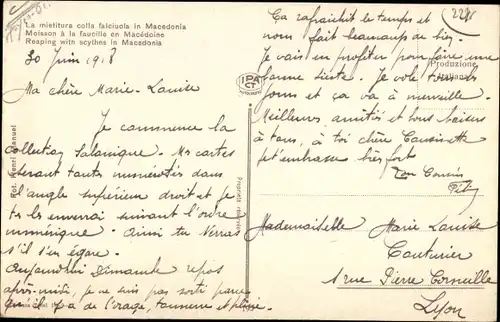 La mietitura colla falciuola in Macedonia
Moisson à la faucille en Macédoine
Reaping with scythes in Macedonia
30 juin 1918
Ma chère Marie-Louise
Je commence la
collection Salonique. Mes cartes
seront toutes numérotées dans
l'angle supérieur droit et je
te les enverrai suivant l'ordre
numérique. Ainsi tu verras
s'il s'en égare.
Aujourd'hui Dimanche repos
après-midi, je ne suis pas sorti parce
qu'il y a de l'orage, tonnerre et pluie.
Ça rafraichit le temps et
nous fait beaucoup de
bien.
Je vais en profiter pour faire une
bonne sieste. Je vole tous les
jours et ça va à merveille.
Meilleures amitiés et bons baisers
à tous, à toi chère Cousinette
je t'embrasse bien fort
Ton Cousin
Mademoiselle Marie Louise
Couturier
1 rue Pierre Corneille
Lyon
Produzione
Italiana
IPA
CT